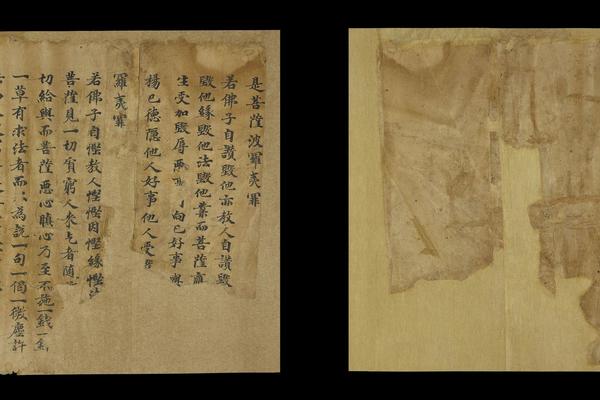 是菩薩波羅夷罪
若佛子自讚毀他亦教人自讚毀
毀他緣毀他法毀他業而菩薩應
生受加毀辱惡向己好事
揚己德隱他人好事他人受
羅夷罪
若佛子自慳教人慳慳因慳緣慳法
菩薩見一切貧窮人來乞者隨
切給與而菩薩惡心瞋心乃至不施一錢一針
一草有求法者而不為說一句一偈一微塵許